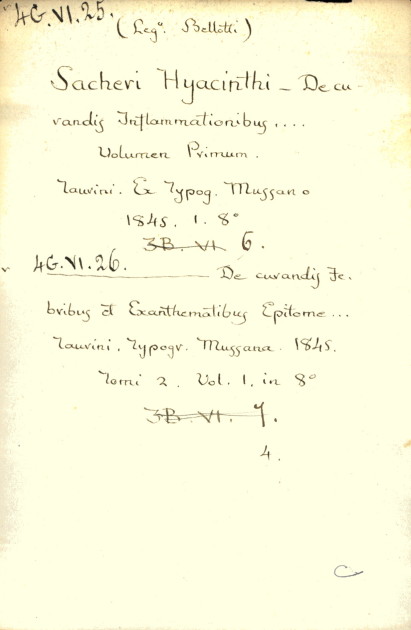 4G.VI.25.
(Leg.º Bellotti)
Sacheri Hyacinthi – De cu-
randis Inflammationibus....
Volumen Primum.
Taurini. Ex Typog. Mussano
1845. 1. 8º
3B. VI. 6.
4G.VI.26. De curandis Fe.
bribus et Exanthematibus Epitome...
Taurini. Typogr. Mussana. 1845.
Tomi 2. Vol. 1. in 8º
3B. VI. 7.
4.